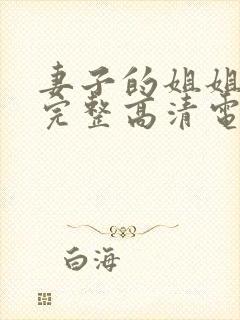 妻子的姐姐
完整高清電
白海